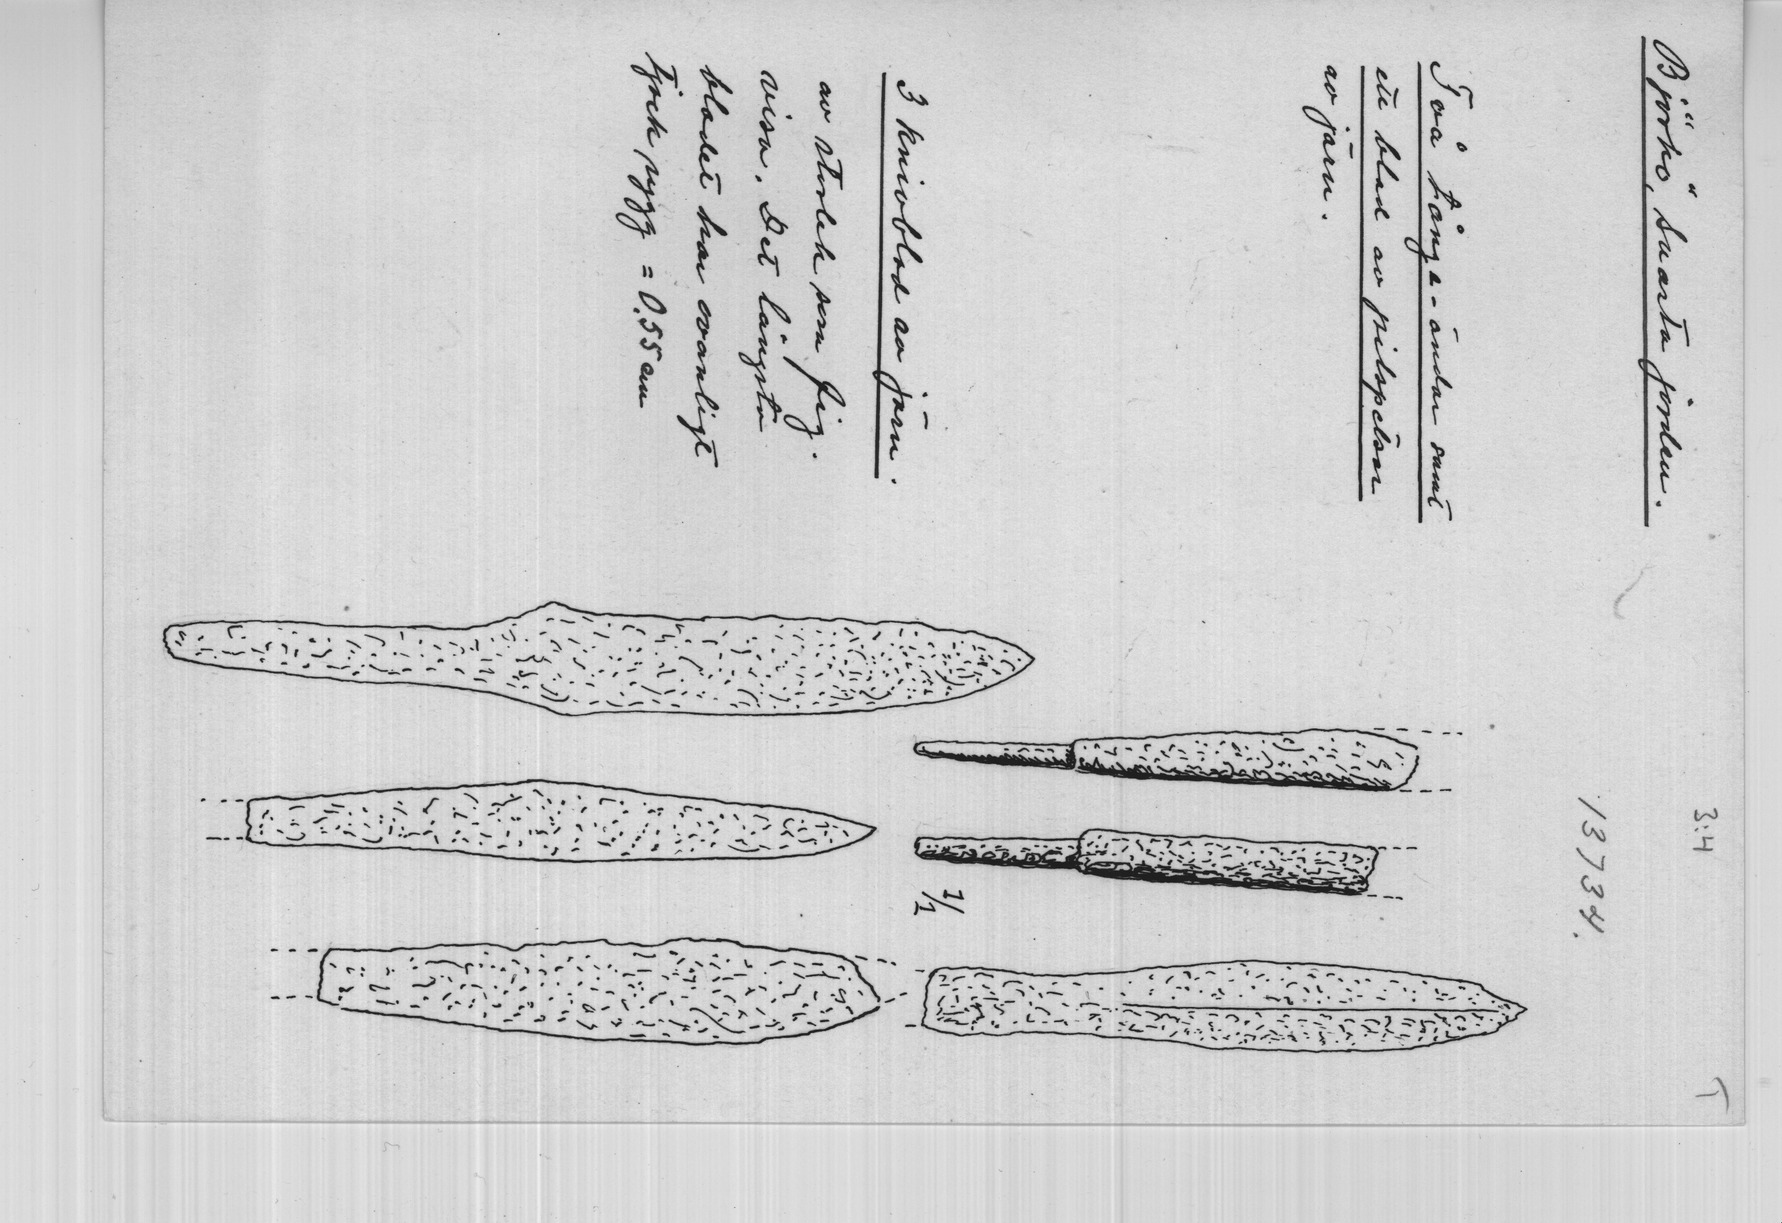 Björkö, Svarta jorden.
3:4
13734.
Två tånge-ändar samt
ett blad av pilspetsar
av järn.
3 knivblad av järn.
av storlek som fig.
visa. Det längsta
bladet har ovanligt
tjock rygg = 0.55 cm
1/1
T